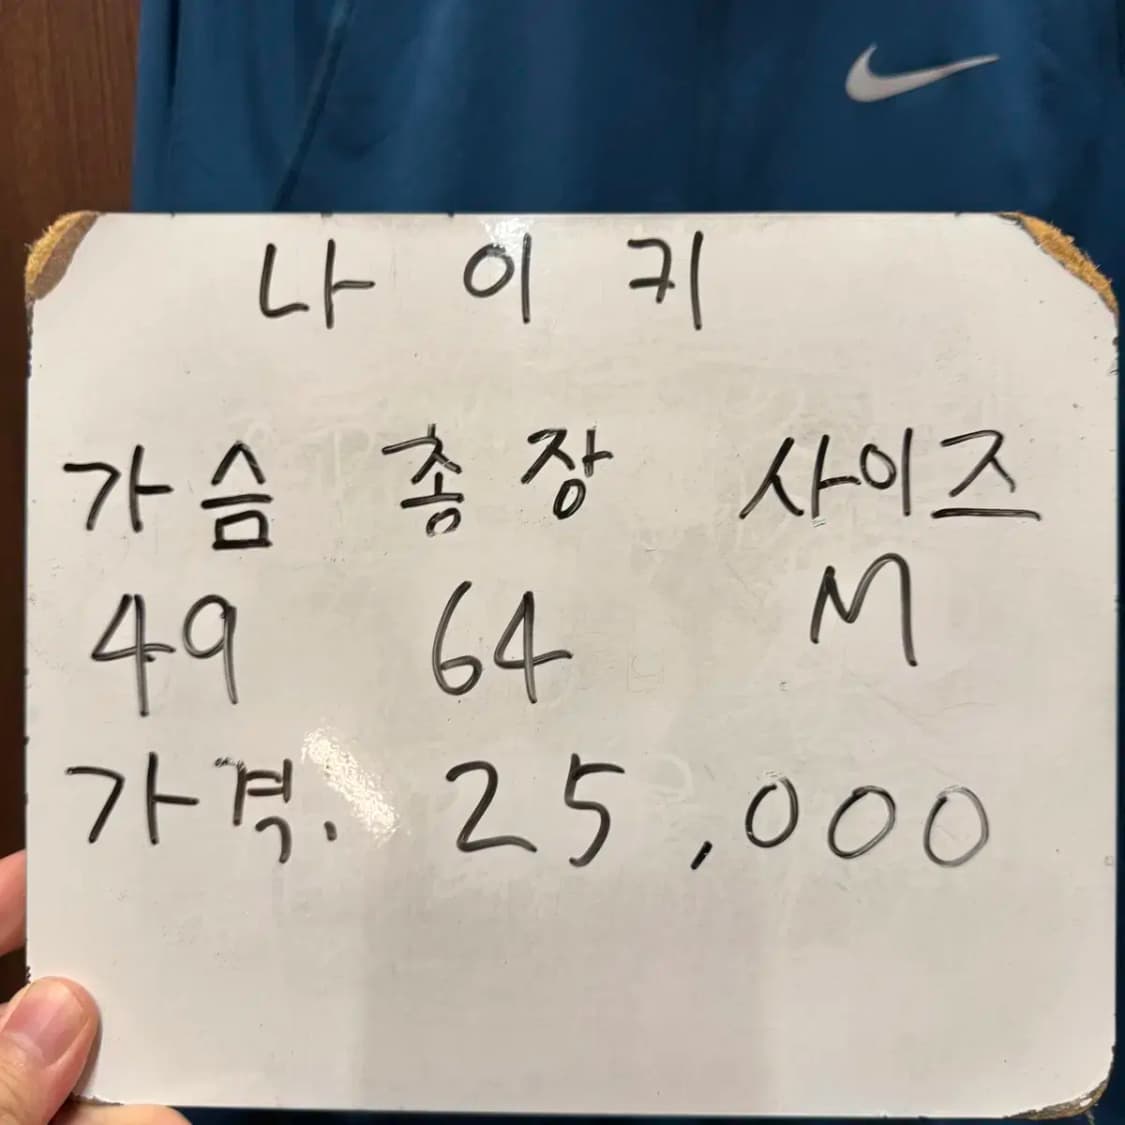 나 이 키
가슴 총장 사이즈
49 64 M
가격. 25,000